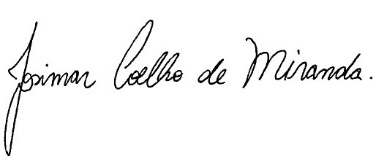 Josimar Coelho de Miranda.